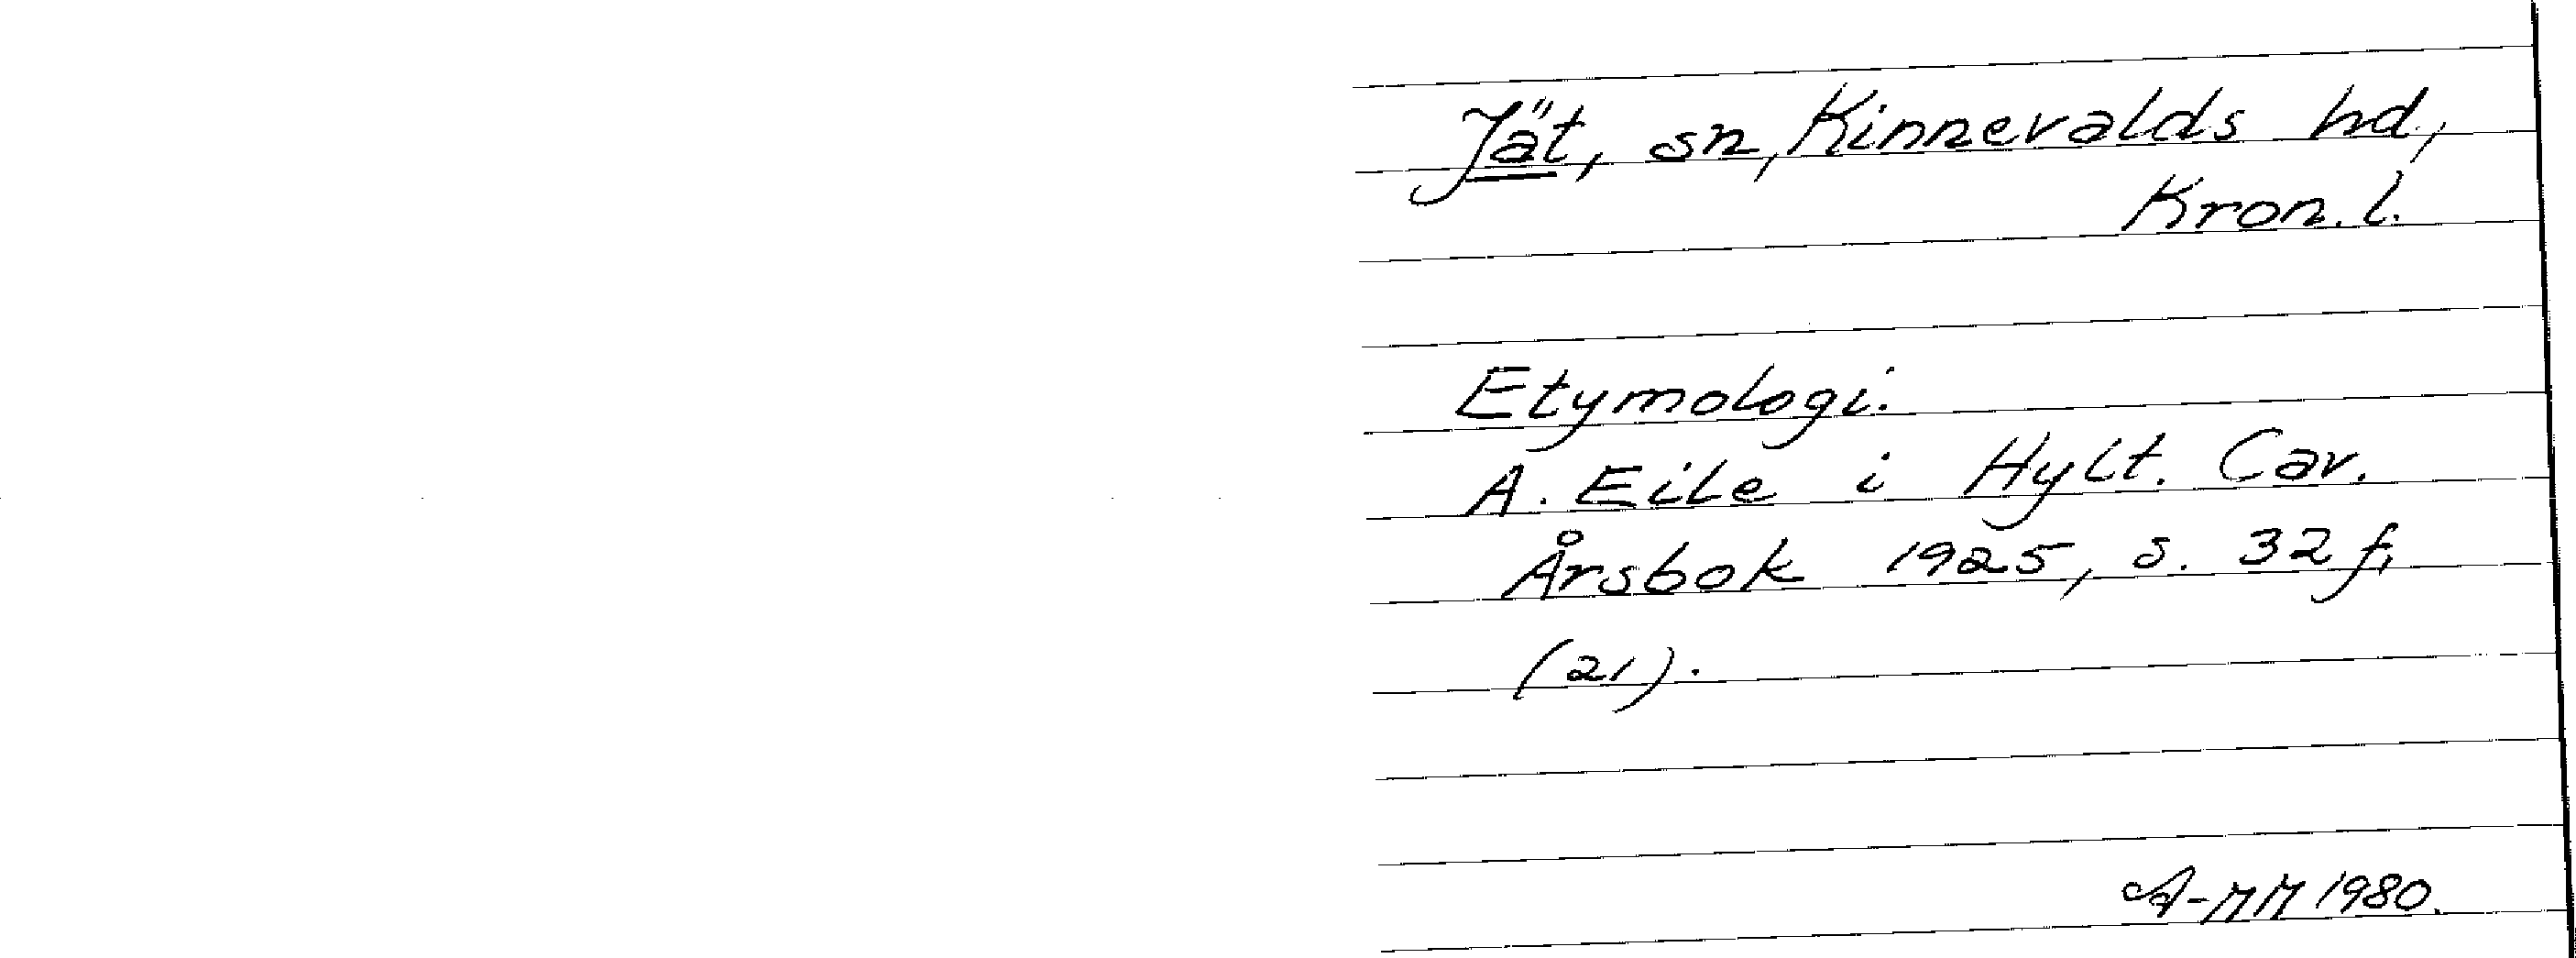 Jät, sn, Kinnevalds hd,
Kron. l.
Etymologi.
A. Eile i Hylt. Cav.
Årsbok 1925, s. 32 f,
(21).
A-MM 1980.